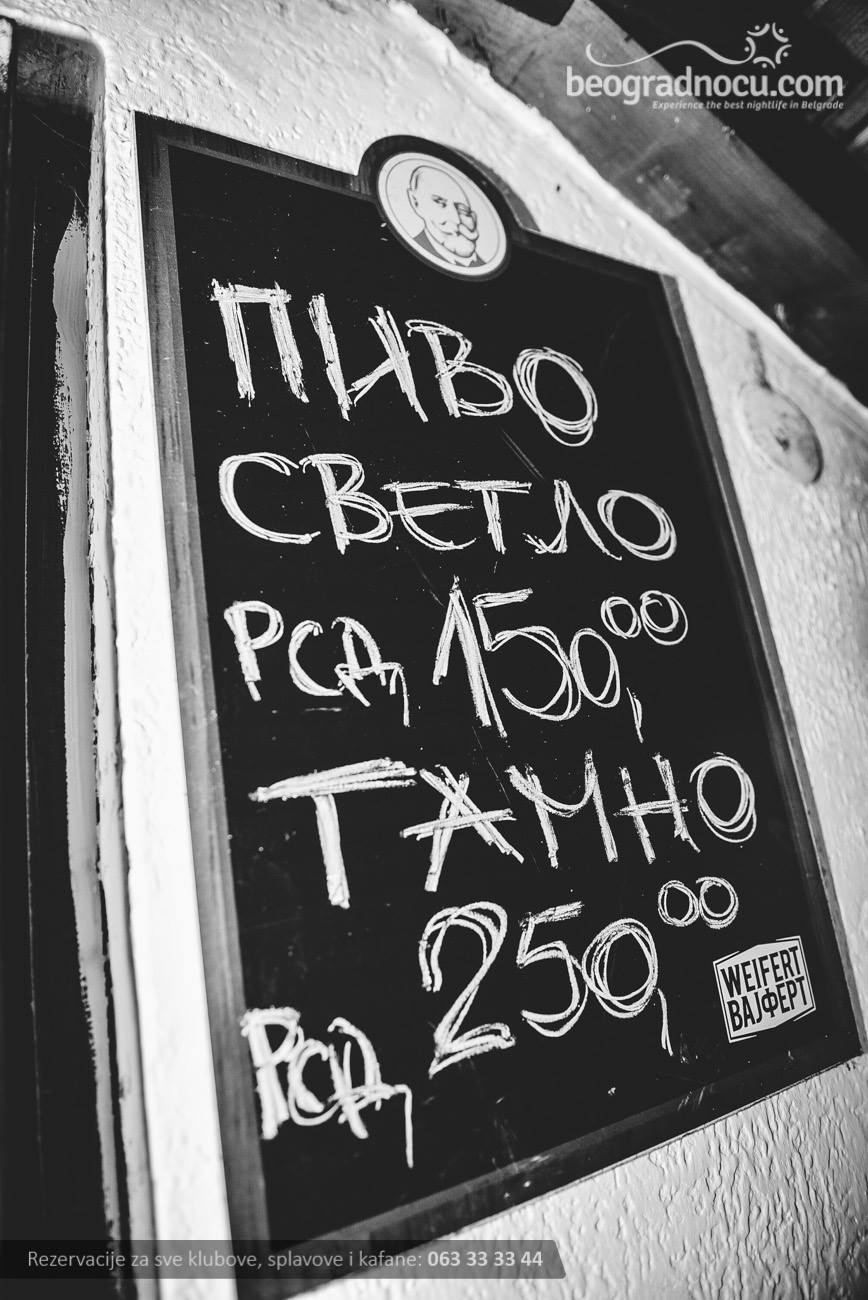 beogradnocu.com
Experience the best nightlife in Belgrade
ПИВО
СВЕТЛО
РСД 150,00
ТАМНО
РСД 250,00
WEIFERT
ВАЈФЕРТ
Rezervacije za sve klubove, splavove i kafane: 063 33 33 44